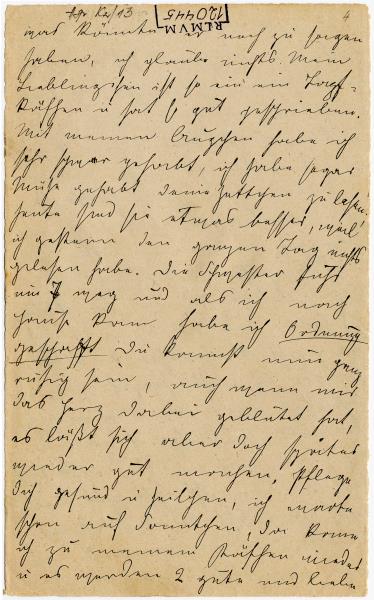 Agr. Ka/13
RLMVM
120445
4
was könnte noch zu sorgen
haben, ich glaube nichts. Mein
Lieblingchen ist so ein ein
u hat so gut geschrieben.
Mit meinen Äugchen habe ich
sehr schwer gehabt, ich habe sogar
Mühe gehabt deine zu lesen.
heute sind sie etwas besser, weil
ich gestern den ganzen Tag nichts
gelesen habe. Die Schwester fuhr
um 7 weg und als ich nach
hause kam habe ich Ordnung
geschafft. Du kannst nun ganz
ruhig sein, auch wenn mir
das Herz dabei geblutet hat,
es läßt sich aber doch später
wieder gut machen. Pflege
dich gesund u, ich warte
schon auf, da komme
ich zu meinem wieder
u es werden 2 gute und liebe